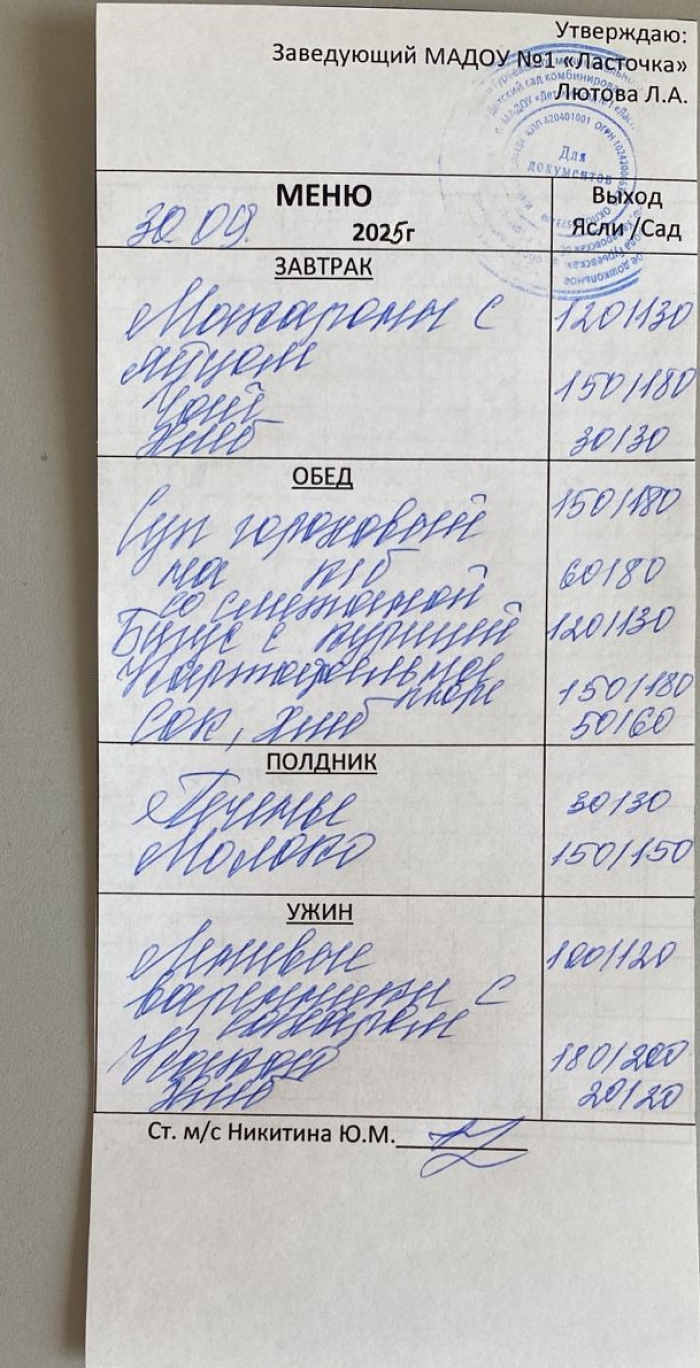 Утверждаю:
Заведующий МАДОУ №1 «Ласточка»
Лютова Л.А.
Для
документов
МЕНЮ
Выход
30.09. 2025г
Ясли /Сад
ЗАВТРАК
Макароны с 120/130
яйцом
Чай 150/180
Хлеб 30/30
ОБЕД
Суп гороховый 150/180
на к/б
со сметаной 60/80
Биус с курицей 120/130
Картофельное
пюре
Сок, хлеб 150/180
50/60
ПОЛДНИК
Печенье 30/30
Молоко 150/150
УЖИН
Ленивые 100/120
вареники с
сахаром
Какао 180/200
Хлеб 20/20
Ст. м/с Никитина Ю.М.